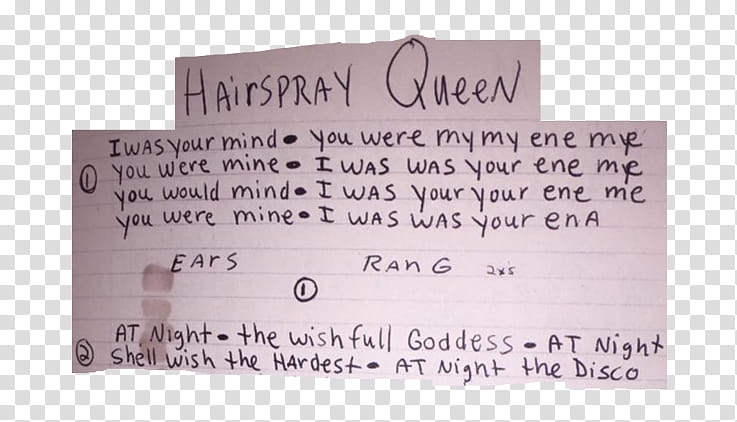 HAirSPRAY QueeN
I WAS your mind • you were my my ene mye
① you were mine • I WAS WAS your ene mye
you would mind • I WAS your your ene me
you were mine • I WAS WAS your enA
EArS RAnG 2x's
①
AT Night • the wishfull Goddess • AT Night
② Shell wish the HArdest • AT Night the Disco